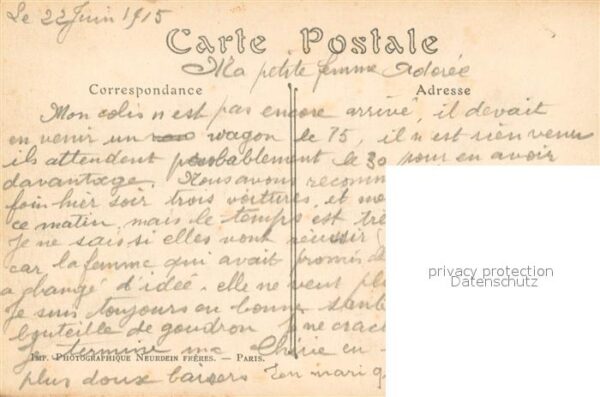 Le 22 Juin 1915
Carte Postale
Ma petite femme Adorée
Correspondance
Adresse
Mon colis n est pas encore arrivé, il devait
en venir un wagon le 15, il n est rien venu
ils attendent probablement le 30 pour en avoir
davantage. Nous avons recomm
foin hier soir trois voitures, et
ce matin, mais le temps est trè
Je ne sais si elles vont réussir
car la femme qui avait promis
a changé d'idée, elle ne veut pl
Je suis toujours en bonne santé
bouteille de goudron Je ne crac
Je termine ma Chérie en
IMP. PHOTOGRAPHIQUE NEURDEIN FRÈRES. — PARIS.
plus doux baisers Ton mari q
privacy protection
Datenschutz